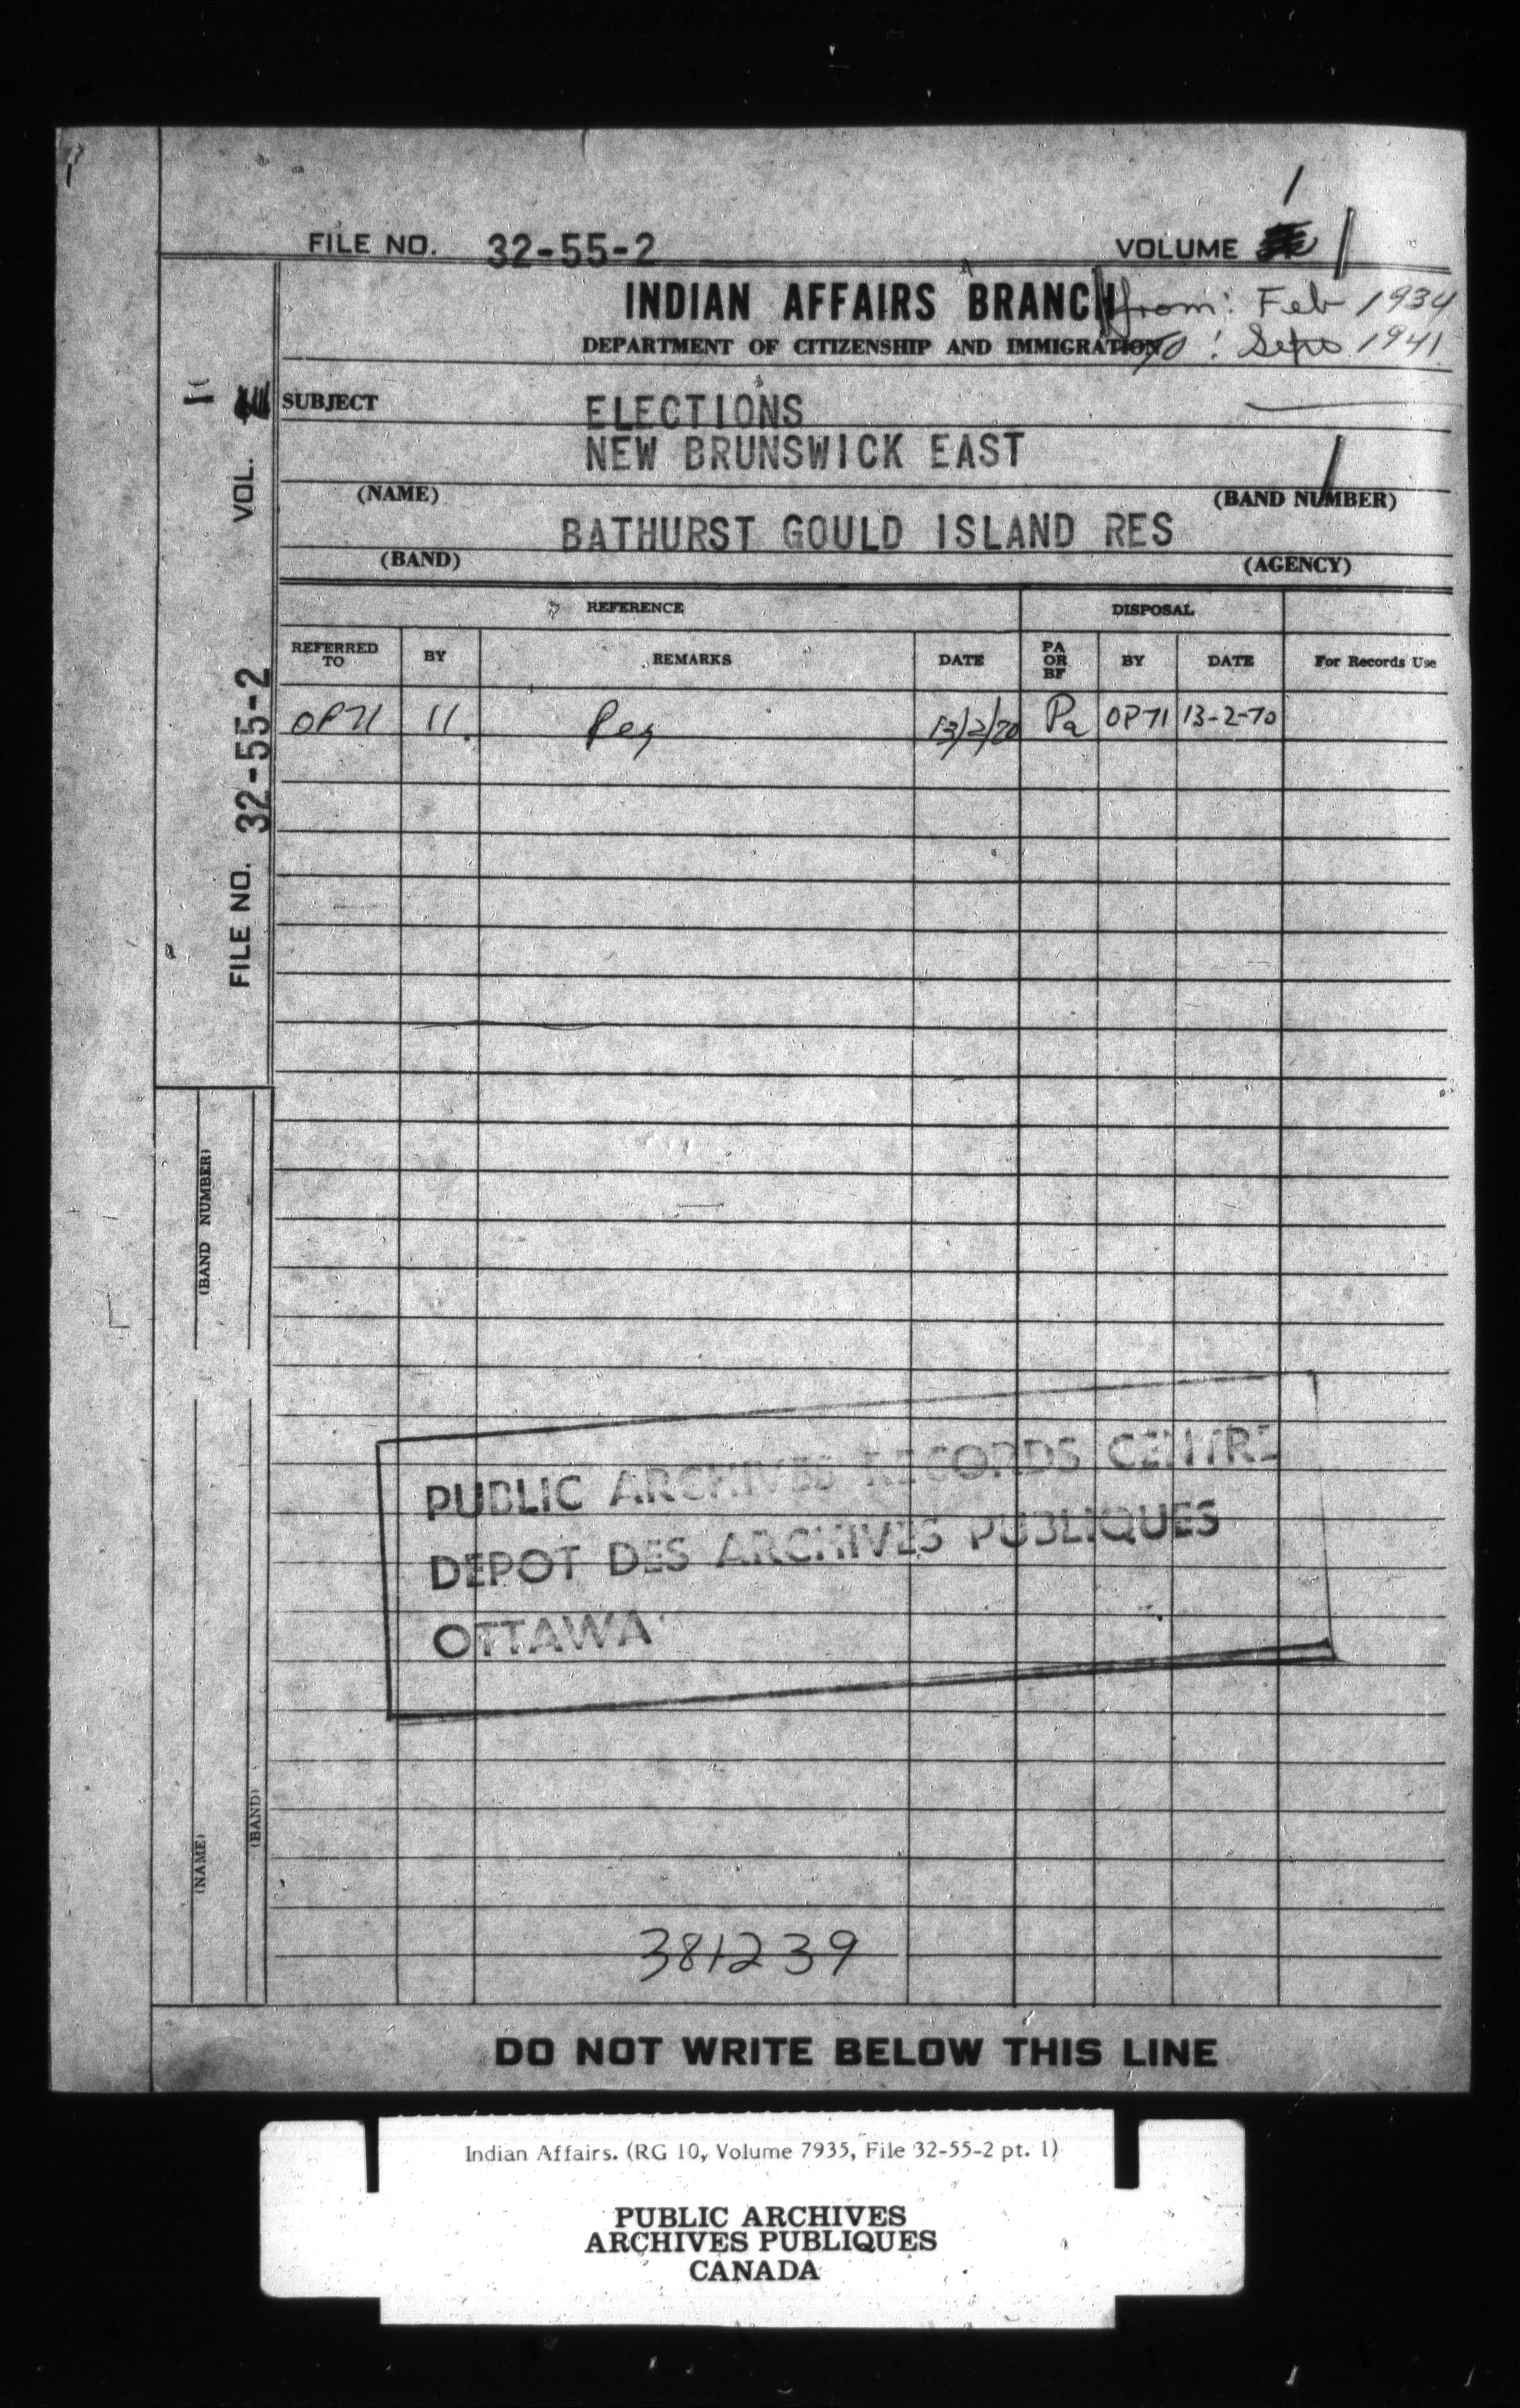 1
FILE NO. 32-55-2 VOLUME 1
INDIAN AFFAIRS BRANCH from: Feb 1934
DEPARTMENT OF CITIZENSHIP AND IMMIGRATION TO: Sept 1941
SUBJECT ELECTIONS
NEW BRUNSWICK EAST
(NAME) (BAND NUMBER)
BATHURST GOULD ISLAND RES
(BAND) (AGENCY)
REFERENCE DISPOSAL
REFERRED TO BY REMARKS DATE PA OR BF BY DATE For Records Use
OP71 11. 13/2/70 Pa OP71 13-2-70
FILE NO. 32-55-2 VOL. 1
(BAND NUMBER)
(NAME)
(BAND)
PUBLIC ARCHIVES RECORDS CENTRE
DEPOT DES ARCHIVES PUBLIQUES
OTTAWA
381239
DO NOT WRITE BELOW THIS LINE
Indian Affairs. (RG 10, Volume 7935, File 32-55-2 pt. 1)
PUBLIC ARCHIVES
ARCHIVES PUBLIQUES
CANADA